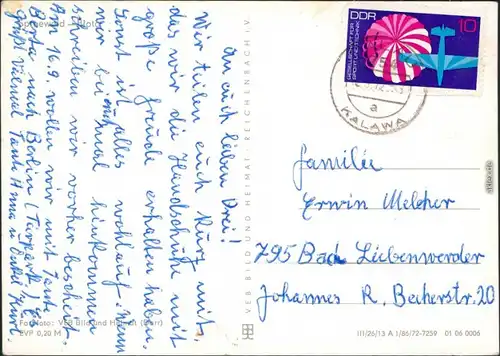 Spreewald
An euch lieben Drei!
Wir teilen euch kurz mit,
das wir die Handschuhe mit
große Freude erhalten haben.
Sonst ist alles wohlauf. Wenn
wir einmal hinkommen
schreiben wir vorher bescheid.
Am 16.9. wollen wir mit Tante
nach Berlin (Tierpark) Es
grüßt vielmal Tante Anna u. Onkel Kurt
Foto: VEB Bild und Heimat (Darr)
EVP 0,20 M
VEB BILD UND HEIMAT · REICHENBACH I. V.
DDR
10
GESELLSCHAFT FÜR
SPORT UND TECHNIK
a
KALAWA
Familie
Erwin Melcher
795 Bad Liebenwerder
Johannes R. Becherstr. 20
III/26/13 A 1/86/72-7259 01 06 0006